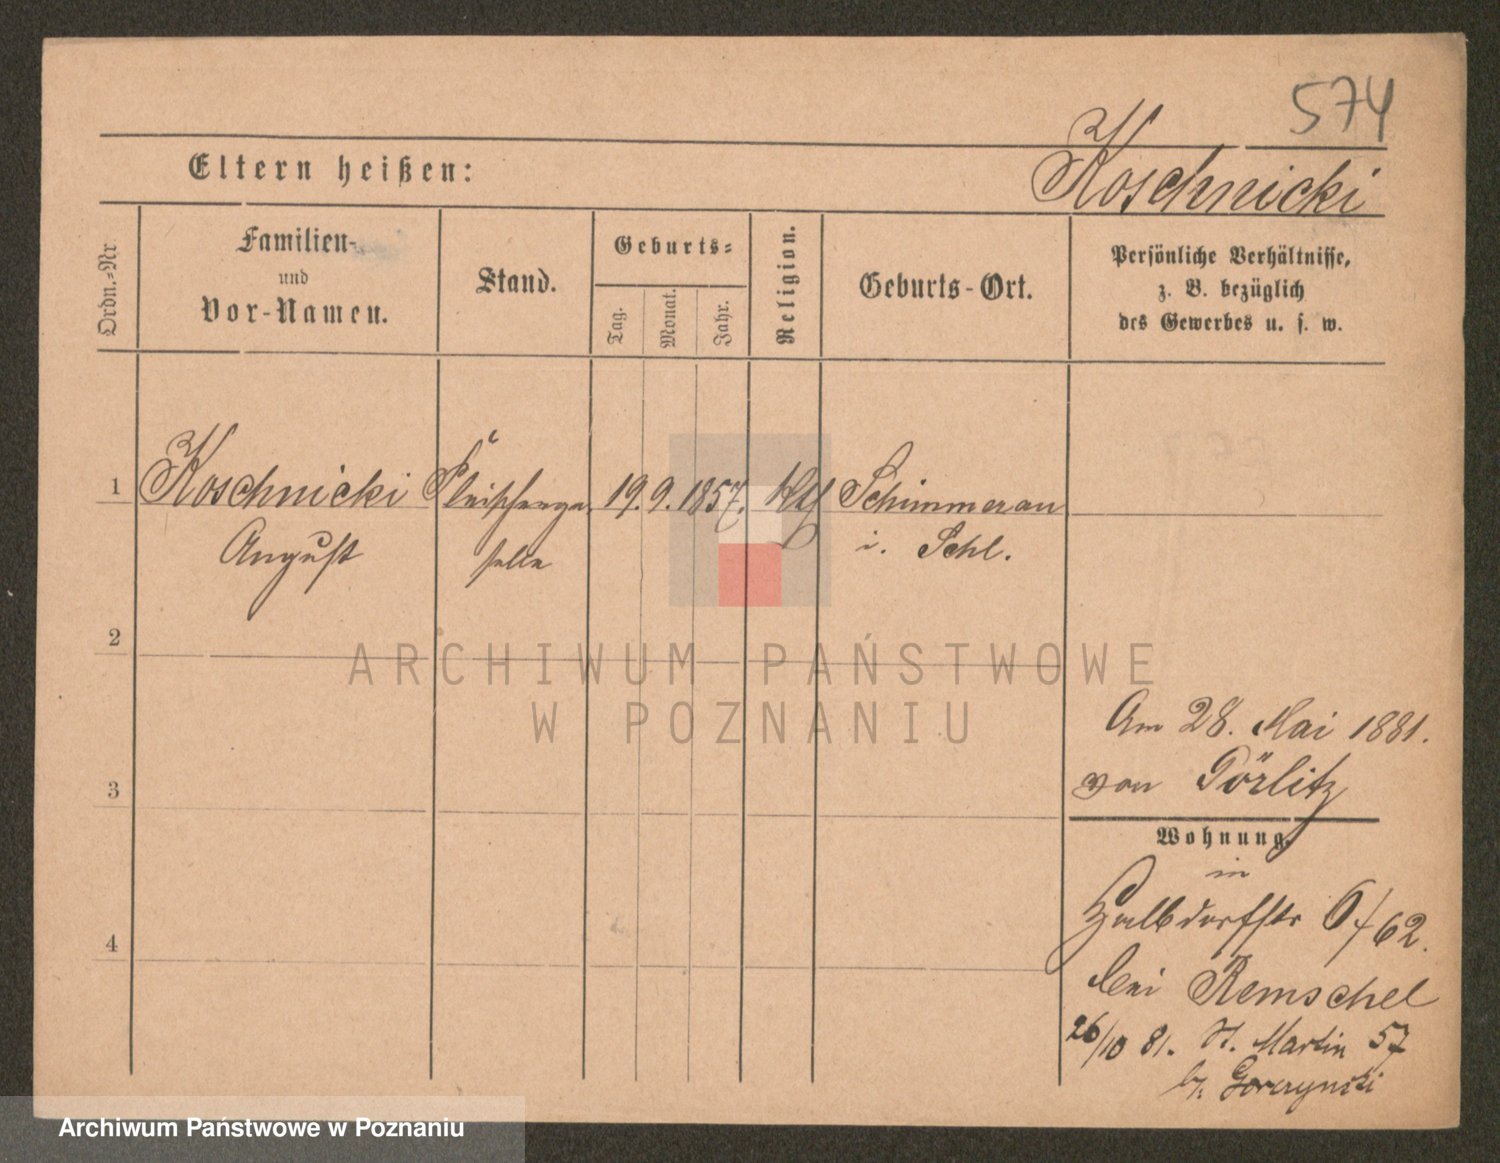 574
Koschnicki
Eltern heißen:
Ordn.-Nr
Familien-
und
Vor-Namen.
Stand.
Geburts-
Tag.
Monat.
Jahr.
Religion.
Geburts-Ort.
Persönliche Verhältnisse,
z. B. bezüglich
des Gewerbes u. s. w.
1 Koschnicki Fleischerge 19. 9. 1857. Kth Schimmerau
August selle i. Schl.
2
3
4
Am 28. Mai 1881.
von Görlitz
Wohnung.
in
Halbdorfstr 6/62.
bei Remschel
26/10 81. St. Martin 57
b/. Gorzynski
ARCHIWUM PAŃSTWOWE
W POZNANIU
Archiwum Państwowe w Poznaniu